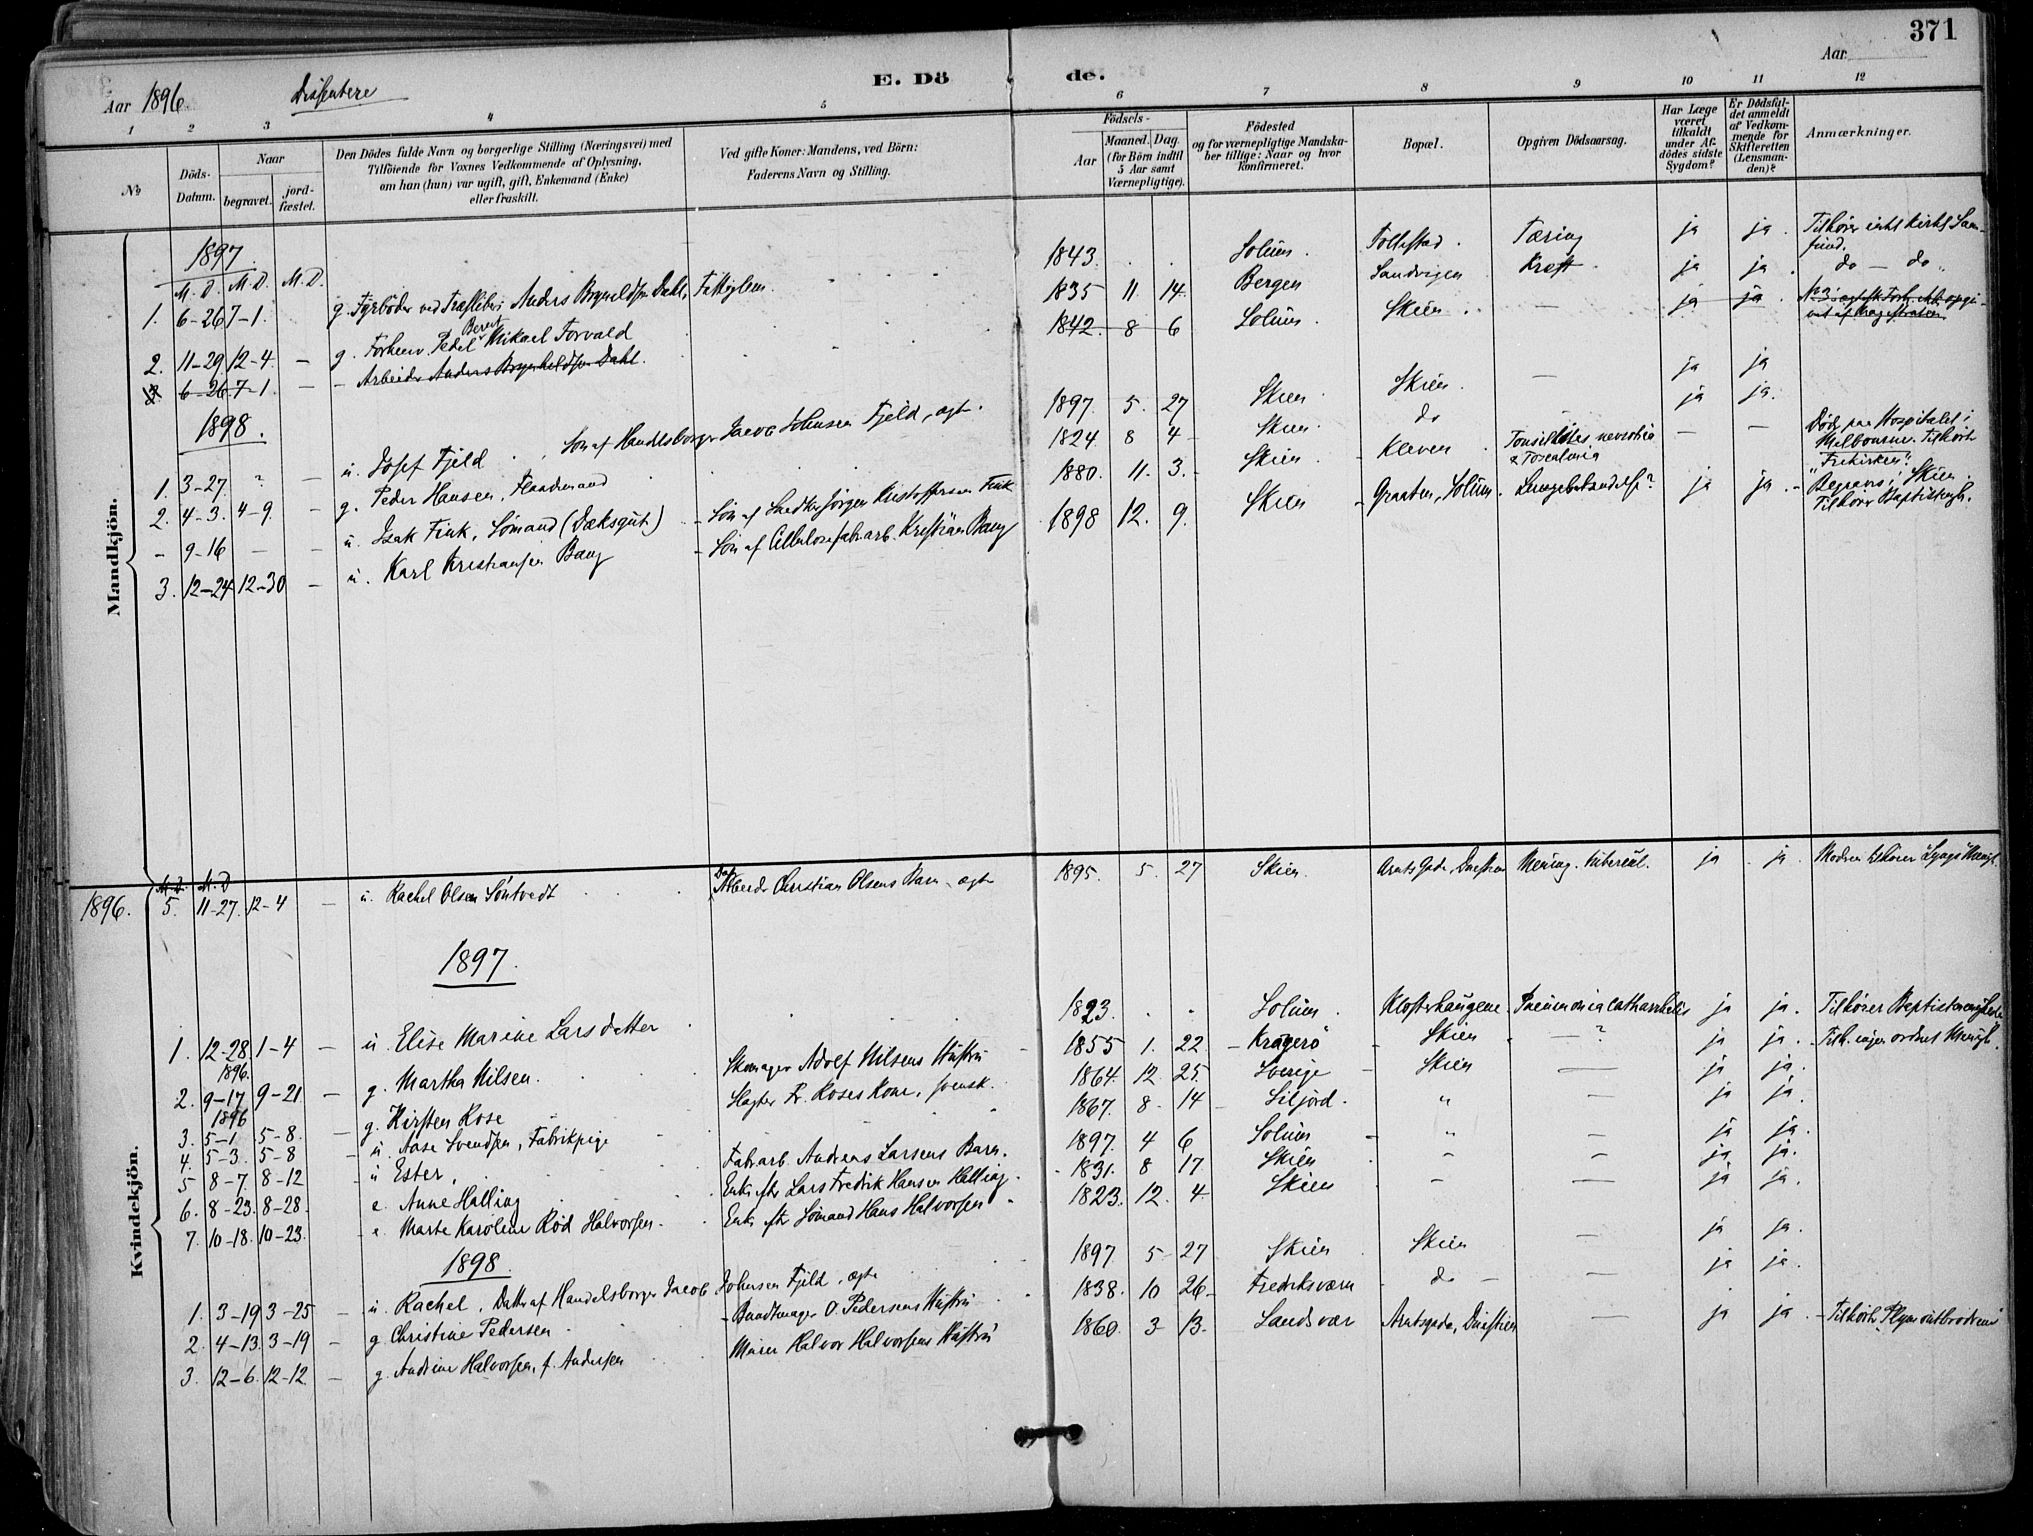 371
E. Döde.
Aar 1896. Dissentere
Aar
1 2 3 4 5 6 7 8 9 10 11 12
No
Döds-Datum.
Naar
begravet.
jord-fæstet.
Den Dödes fulde Navn og borgerlige Stilling (Næringsvei) med
Tilföiende for Voxnes Vedkommende af Oplysning,
om han (hun) var ugift, gift, Enkemand (Enke)
eller fraskilt.
Ved gifte Koner: Mandens, ved Börn:
Faderens Navn og Stilling.
Födsels-
Aar
Maaned. Dag.
(for Börn indtil
5 Aar samt
Værnepligtige).
Födested
og for værnepligtige Mandska-
ber tillige: Naar og hvor
konfirmeret.
Bopæl.
Opgiven Dödsaarsag.
Har Læge
været
tilkaldt
under Af-
dödes sidste
Sygdom?
Er Dödsfal-
det anmeldt
af Vedkom-
mende for
Skifteretten
(Lensman-
den)?
Anmærkninger.
Mandkjön.
1897.
M. D. M. D. M. D.
1. 6-26 7-1. g. Fyrbøder ved Anders Dahl, 1843. Solum. Follestad. Tæring ja ja. Tilhører Sam-
fund.
2. 11-29 12-4. - g. Forhenv. Pedel Berent Mikael Torvald 1835 11. 14. Bergen Sandvigen Kræft. ja ja. do - do
3. 6-26 7-1. - - Arbeider Anders Dahl. 1842. 8 6 Solum. Skien. - ja ja.
1898.
1. 3-27. ? - u. Josef Fjeld. Søn af Handelsborger Jacob Johnsen Fjeld, ægte. 1897. 5. 27 Skien. Skien. - ja ja
2. 4-3. 4-9. - g. Peder Hansen, 1824. 8 4 Skien. do - ja ja.
- 9-16 - - u. Isak Fink, Sømand (Dæksgut) - Søn af Snedker Jørgen Kristoffersen Fink 1880. 11. 3. Skien Kleven. - - Død paa Hospitalet i
Melbourne. Tilhørte
"Frikirken".
3. 12-24 12-30 - u. Karl Kristiansen Bang - Søn af Cellulosefabarb. Kristian Bang 1898 12. 9. Skien - Graaten, Solum. Lungebetændelse? ja ja. - Begravs i Skien
Tilhører Baptistmgh.
Kvindekjön.
M. D. M. D
1896. 5. 11-27. 12-4 - u. Rachel Olsen Søntvedt Arbeider Christian Olsens Barn, ægte 1895. 5. 27 Skien. Mening. tubercul. ja ja. Modren tilhører
1897.
1. 12-28 1896. 1-4 - u. Elise Marine Larsdatter 1823. Solum. Klosterhaugene. Pneumonia catharrhalis ja ja. Tilhører Baptistmenigheden
2. 9-17 1896 9-21 - g. Martha Nilsen. Skomager Adolf Nilsens Hustru 1855 1. 22. - Kragerø - Skien - ? ja ja. Tilh. ingen ordnet Menigh.
3. 5-1. 5-8. - g. Kirsten Rose Slagter Fr. Roses Kone, svensk. 1864. 12 25. Sverige Skien - ja ja.
4. 5-3. 5-8 - u. Aase Svendsen, Fabrikpige 1867. 8 14 - Siljord. " - ja ja.
5 8-7. 8-12 - u Ester, Fabarb. Andreas Larsens Barn. 1897. 4 6 Solum " - ja ja.
6. 8-23. 8-28 - e. Anne Halling Enke efter Lars Fredrik Hansen Halling. 1831. 8 17 Skien " - ja ja.
7. 10-18. 10-23. - e. Marte Karoline Rød Halvorsen. Enke efter Sømand Hans Halvorsen 1823. 12. 4 Skien - - ja ja.
1898
1. 3-19 3-25 - u. Rachel, Datter af Handelsborger Jacob Johnsen Fjeld, ægte 1897. 5 27 Skien Skien - ja ja.
2. 4-13. 3-19 - g Christine Pedersen - Bundtmager O. Pedersens Hustru 1838. 10 26. Fredriksværn do - ja ja.
3. 12-6. 12-12. - g. Andrine Halvorsen, f. Andersen Murer Halvor Halvorsens Hustru 1860. 3 13. Sandsvær - ja ja. - Tilhørte